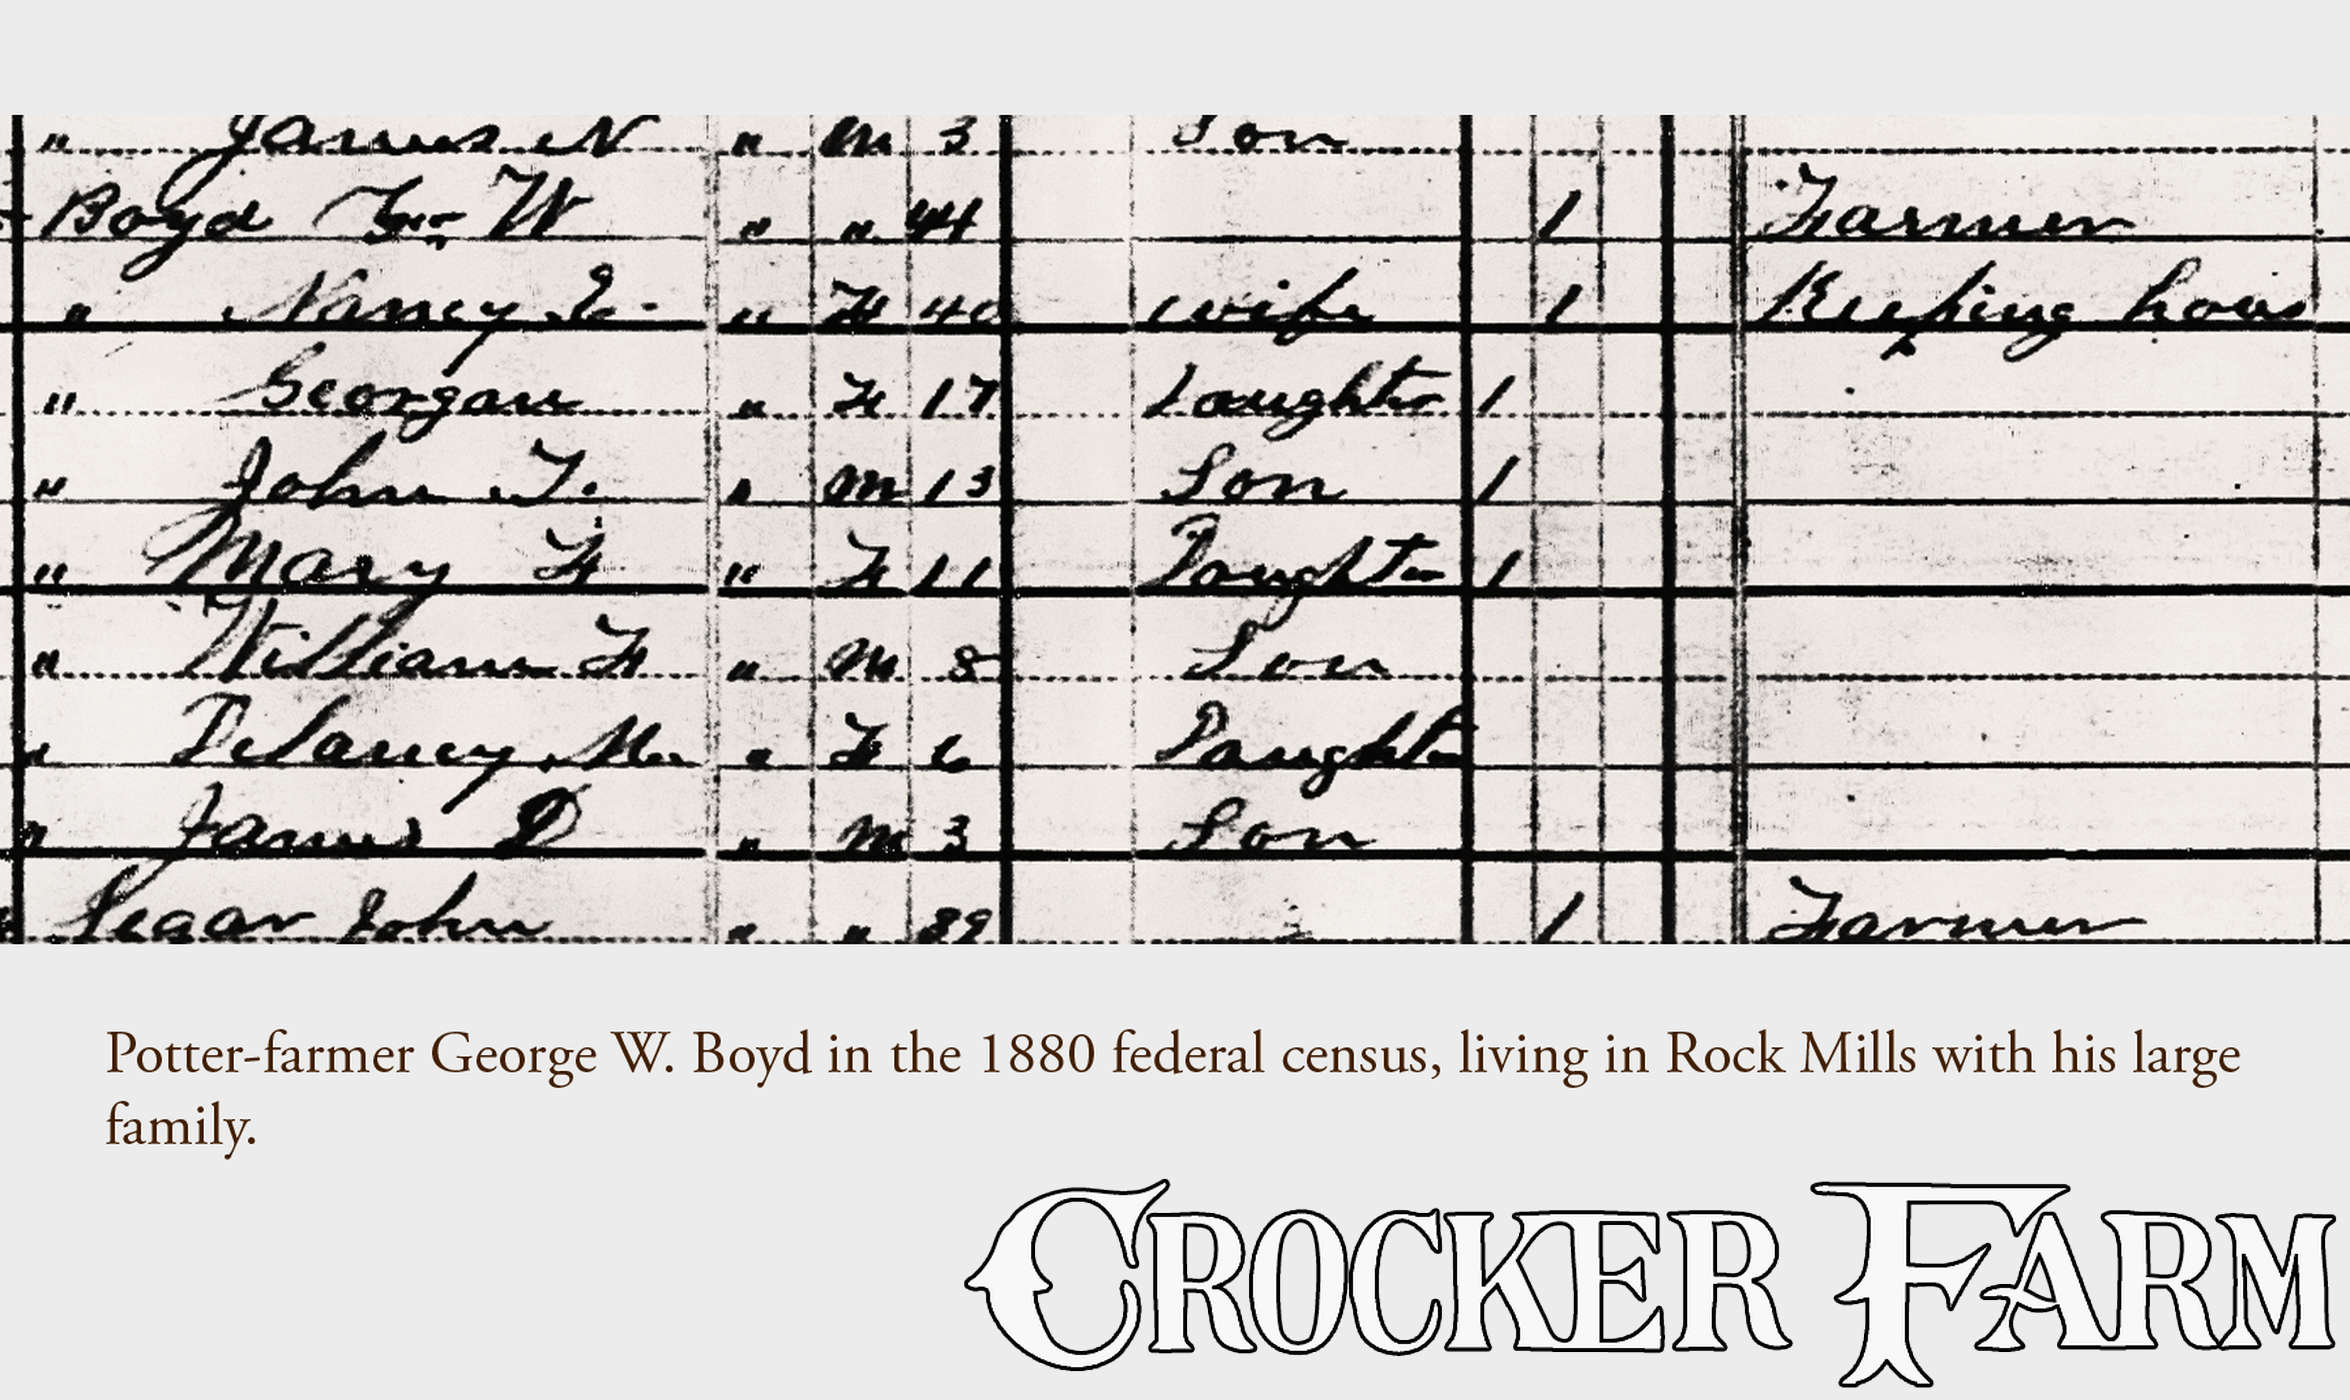 " James N " M 3 Son
Boyd Geo. W " " 44 1 Farmer
" Nancy E. " F 40 wife 1 Keeping hous
" Georgan " F 17 Daughter 1
" John T. " M 13 Son 1
" Mary F " F 11 Daughter 1
" William F " M 8 Son
" Delaney M. " F 6 Daughter
" James D " M 3 Son
John " " 39 1 Farmer
Potter-farmer George W. Boyd in the 1880 federal census, living in Rock Mills with his large
family.
CROCKER FARM